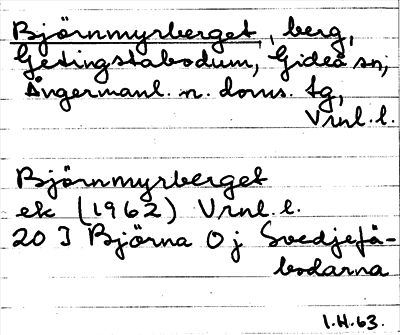 Björnmyrberget, berg,
Getingstabodum, Gideå sn,
Ångermanl. n. doms. tg,
Vrnl. l.
Björnmyrberget
ek (1962) Vrnl. l.
20 I Björna O j Svedjefä-
bodarna
1.H.63.